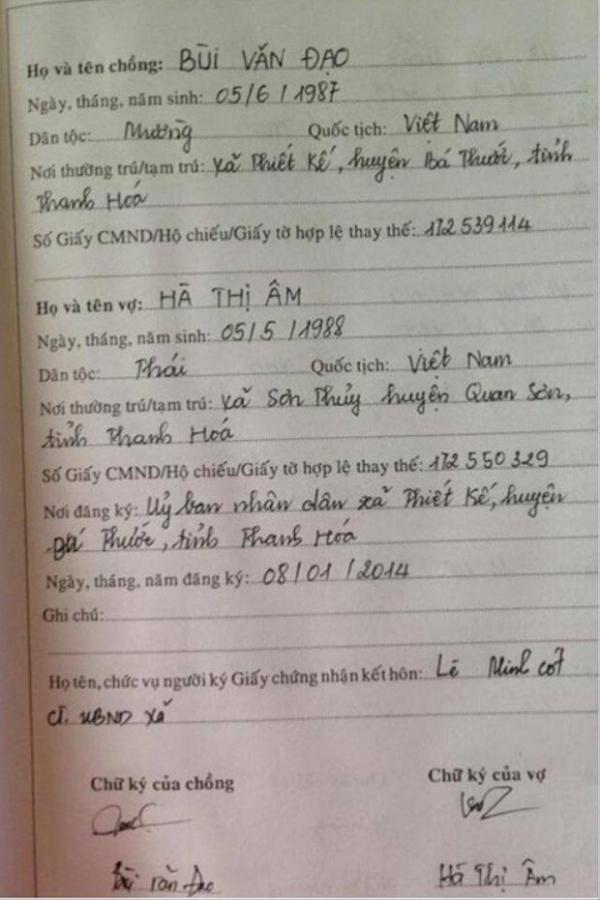 Họ và tên chồng: BÙI VĂN ĐẠO
Ngày, tháng, năm sinh: 05/6/1987
Dân tộc: Mường Quốc tịch: Việt Nam
Nơi thường trú/tạm trú: Xã Thiết Kế, huyện Bá Thước, tỉnh
Thanh Hoá
Số Giấy CMND/Hộ chiếu/Giấy tờ hợp lệ thay thế: 172 539 114
Họ và tên vợ: HÀ THỊ ÂM
Ngày, tháng, năm sinh: 05/5/1988
Dân tộc: Thái Quốc tịch: Việt Nam
Nơi thường trú/tạm trú: Xã Sơn Thủy huyện Quan Sơn,
tỉnh Thanh Hoá
Số Giấy CMND/Hộ chiếu/Giấy tờ hợp lệ thay thế: 172 550 329
Nơi đăng ký: Uỷ ban nhân dân xã Thiết Kế, huyện
Bá Thước, tỉnh Thanh Hóa
Ngày, tháng, năm đăng ký: 08/01/2014
Ghi chú:
Họ tên, chức vụ người ký Giấy chứng nhận kết hôn: Lê Minh
CT. UBND xã
Chữ ký của chồng Chữ ký của vợ
Bùi Văn Đạo Hà Thị Âm